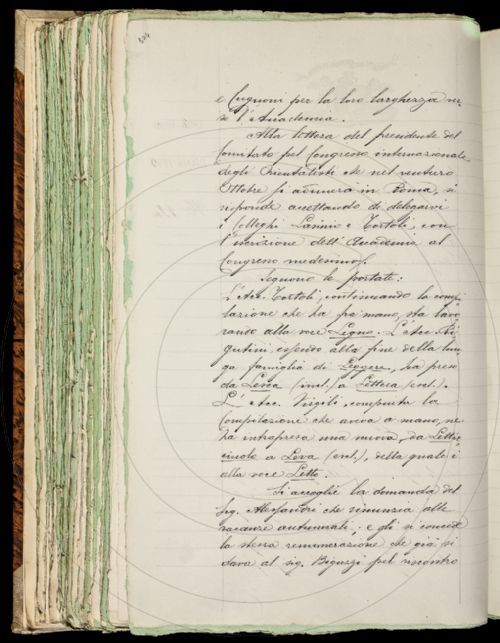 e Cugnoni per la loro larghezza ver
so l'Accademia.
Alla lettera del presidente del
Comitato pel Congresso internazionale
degli Orientalisti che nel venturo
Ottobre si adunerà in Roma, si
risponde accettando di delegarvi
i Colleghi Lasinio e Tortoli, con
l'iscrizione dell'Accademia al
Congresso medesimo.
Seguono le portate:
L'Acc. Tortoli, continuando la compi
lazione che ha fra mano, sta lavo
rando alla voce Legno. L'Acc. Ri
gutini essendo alla fine della lun
ga famiglia di Leggere, ha preso
da Lesca (incl.) a Lettera (excl.).
L'Acc. Virgili, compiuta la
Compilazione che aveva a mano, ne
ha intrapresa una nuova, da Lettic
ciuolo a Leva (excl.), della quale è
alla voce Letto.
Si accoglie la domanda del
Sig. Alessandri che rinunzia alle
vacanze autunnali; e gli si concede
la stessa remunerazione che già si
dava al sig. Biguzzi pel riscontro